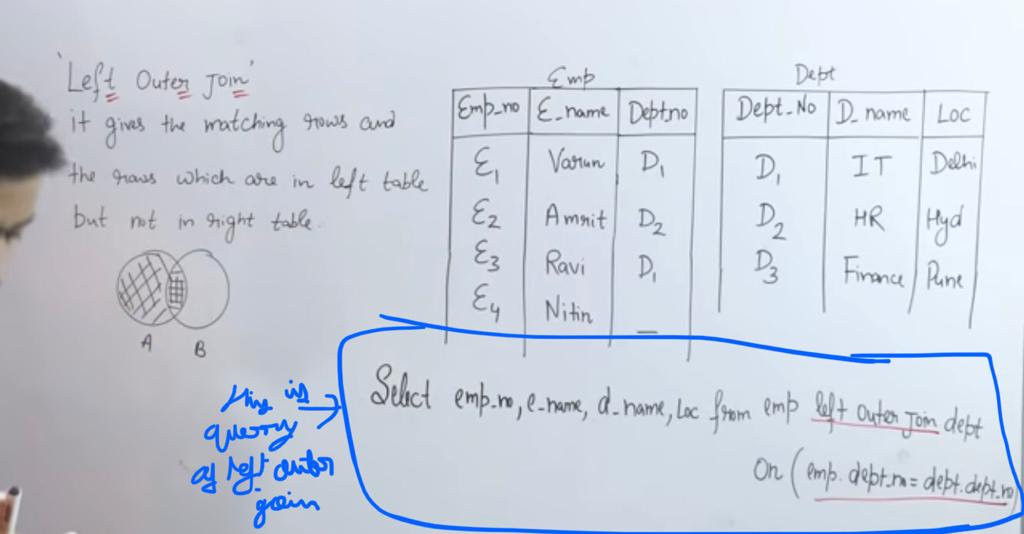 'Left Outer Join'
it gives the matching rows and
the rows which are in left table
but not in right table.
A B
Emp
Emp_no E_name Dept_no
E1 Varun D1
E2 Amrit D2
E3 Ravi D1
E4 Nitin —
Dept
Dept_No D_name Loc
D1 IT Delhi
D2 HR Hyd
D3 Finance Pune
Select emp_no, e_name, d_name, Loc from emp left outer join dept
On (emp.dept_no = dept.dept_no)
this is
querry
of left outer
join